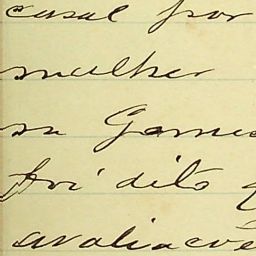 casal por
mulher
sa Gomes
foi dito q
avaliave